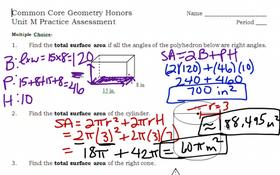 Common Core Geometry Honors
Name
Unit M Practice Assessment
Period
Multiple Choice:
1. Find the total surface area if all the angles of the polyhedron below are right angles.
B: l·w = 15x8 = 120
P: 15+8+15+8=46
H: 10
15 in
8 in
SA = 2B + PH
2(120) + (46)(10)
240 + 460
700 in²
2. Find the total surface area of the cylinder.
r=3
SA = 2πr² + 2πrH
= 2π(3)² + 2π(3)(7)
= 18π + 42π = 60π m²
≈ 188.495 m²
3. Find the total surface area of the right cone.